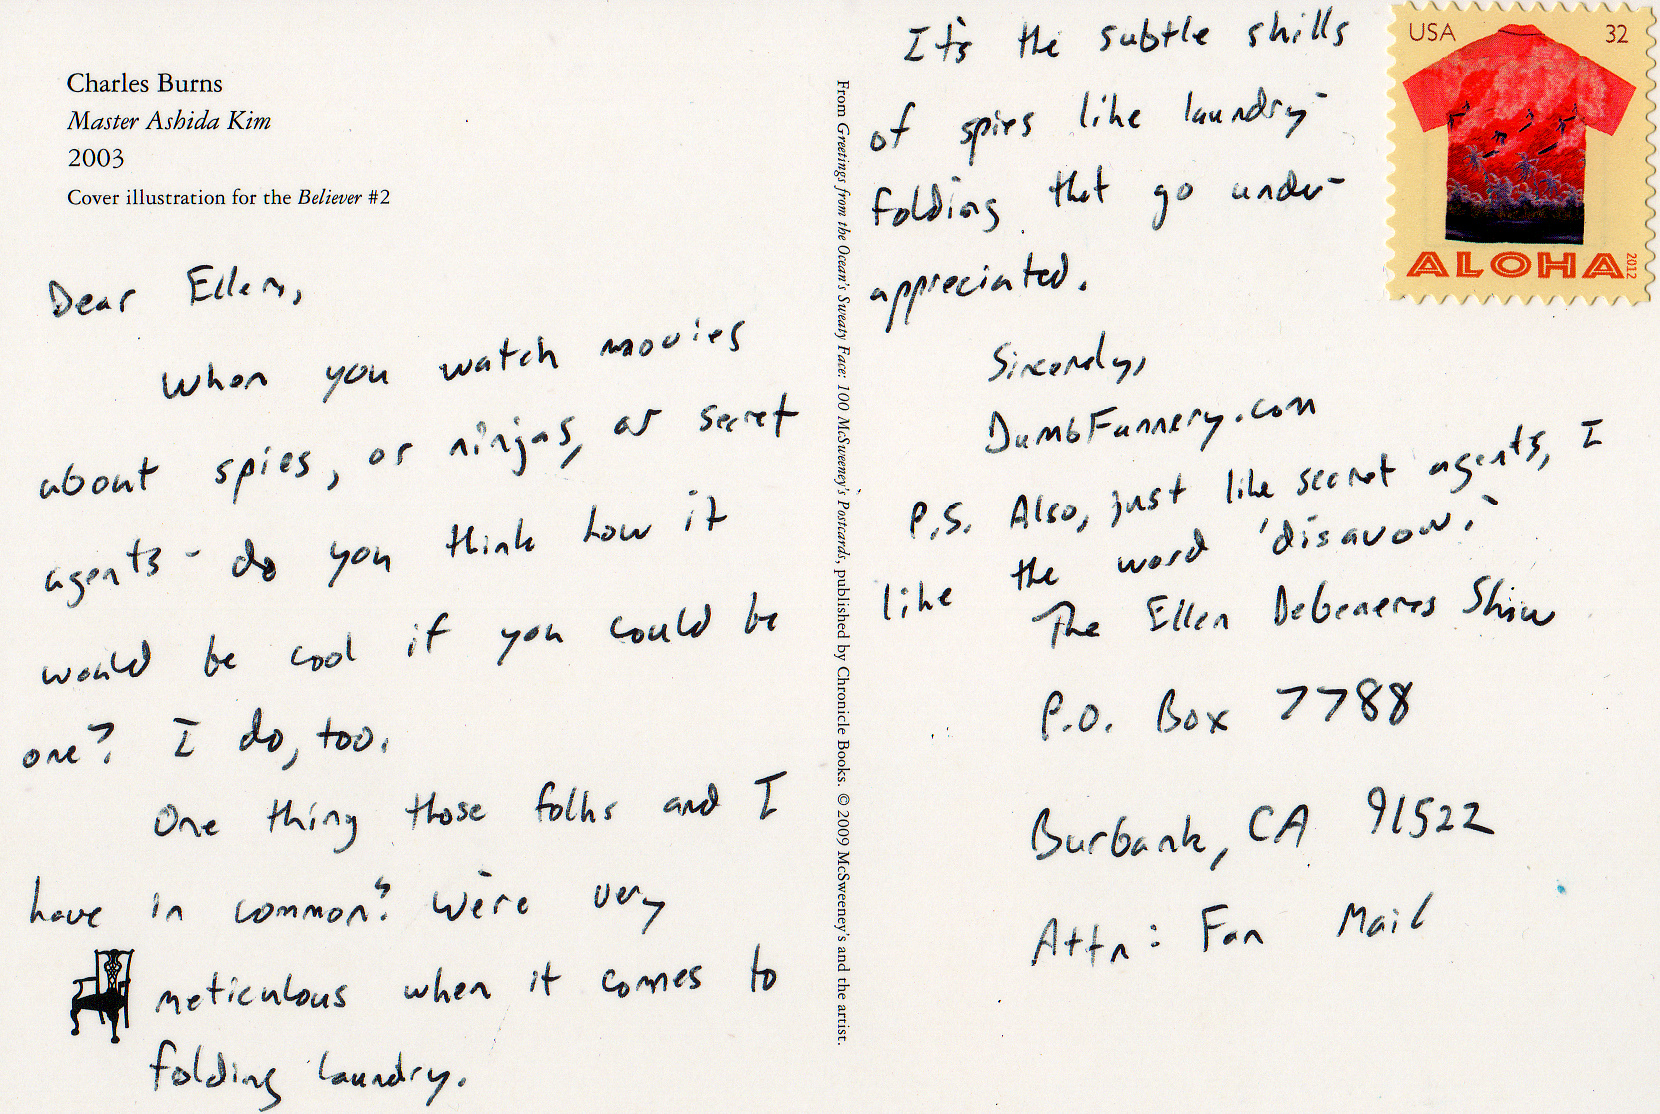 Charles Burns
Master Ashida Kim
2003
Cover illustration for the Believer #2
Dear Ellen,
When you watch movies
about spies, or ninjas, or secret
agents - do you think how it
would be cool if you could be
one? I do, too.
One thing those folks and I
have in common? We're very
meticulous when it comes to
folding laundry.
From Greetings from the Ocean's Sweaty Face: 100 McSweeney's Postcards, published by Chronicle Books. © 2009 McSweeney's and the artist.
It's the subtle skills
of spies like laundry-
folding that go under-
appreciated.
Sincerely,
DumbFunnery.com
P.S. Also, just like secret agents, I
like the word 'disavow.'
The Ellen DeGeneres Show
P.O. Box 7788
Burbank, CA 91522
Attn: Fan Mail
USA 32
ALOHA
2012